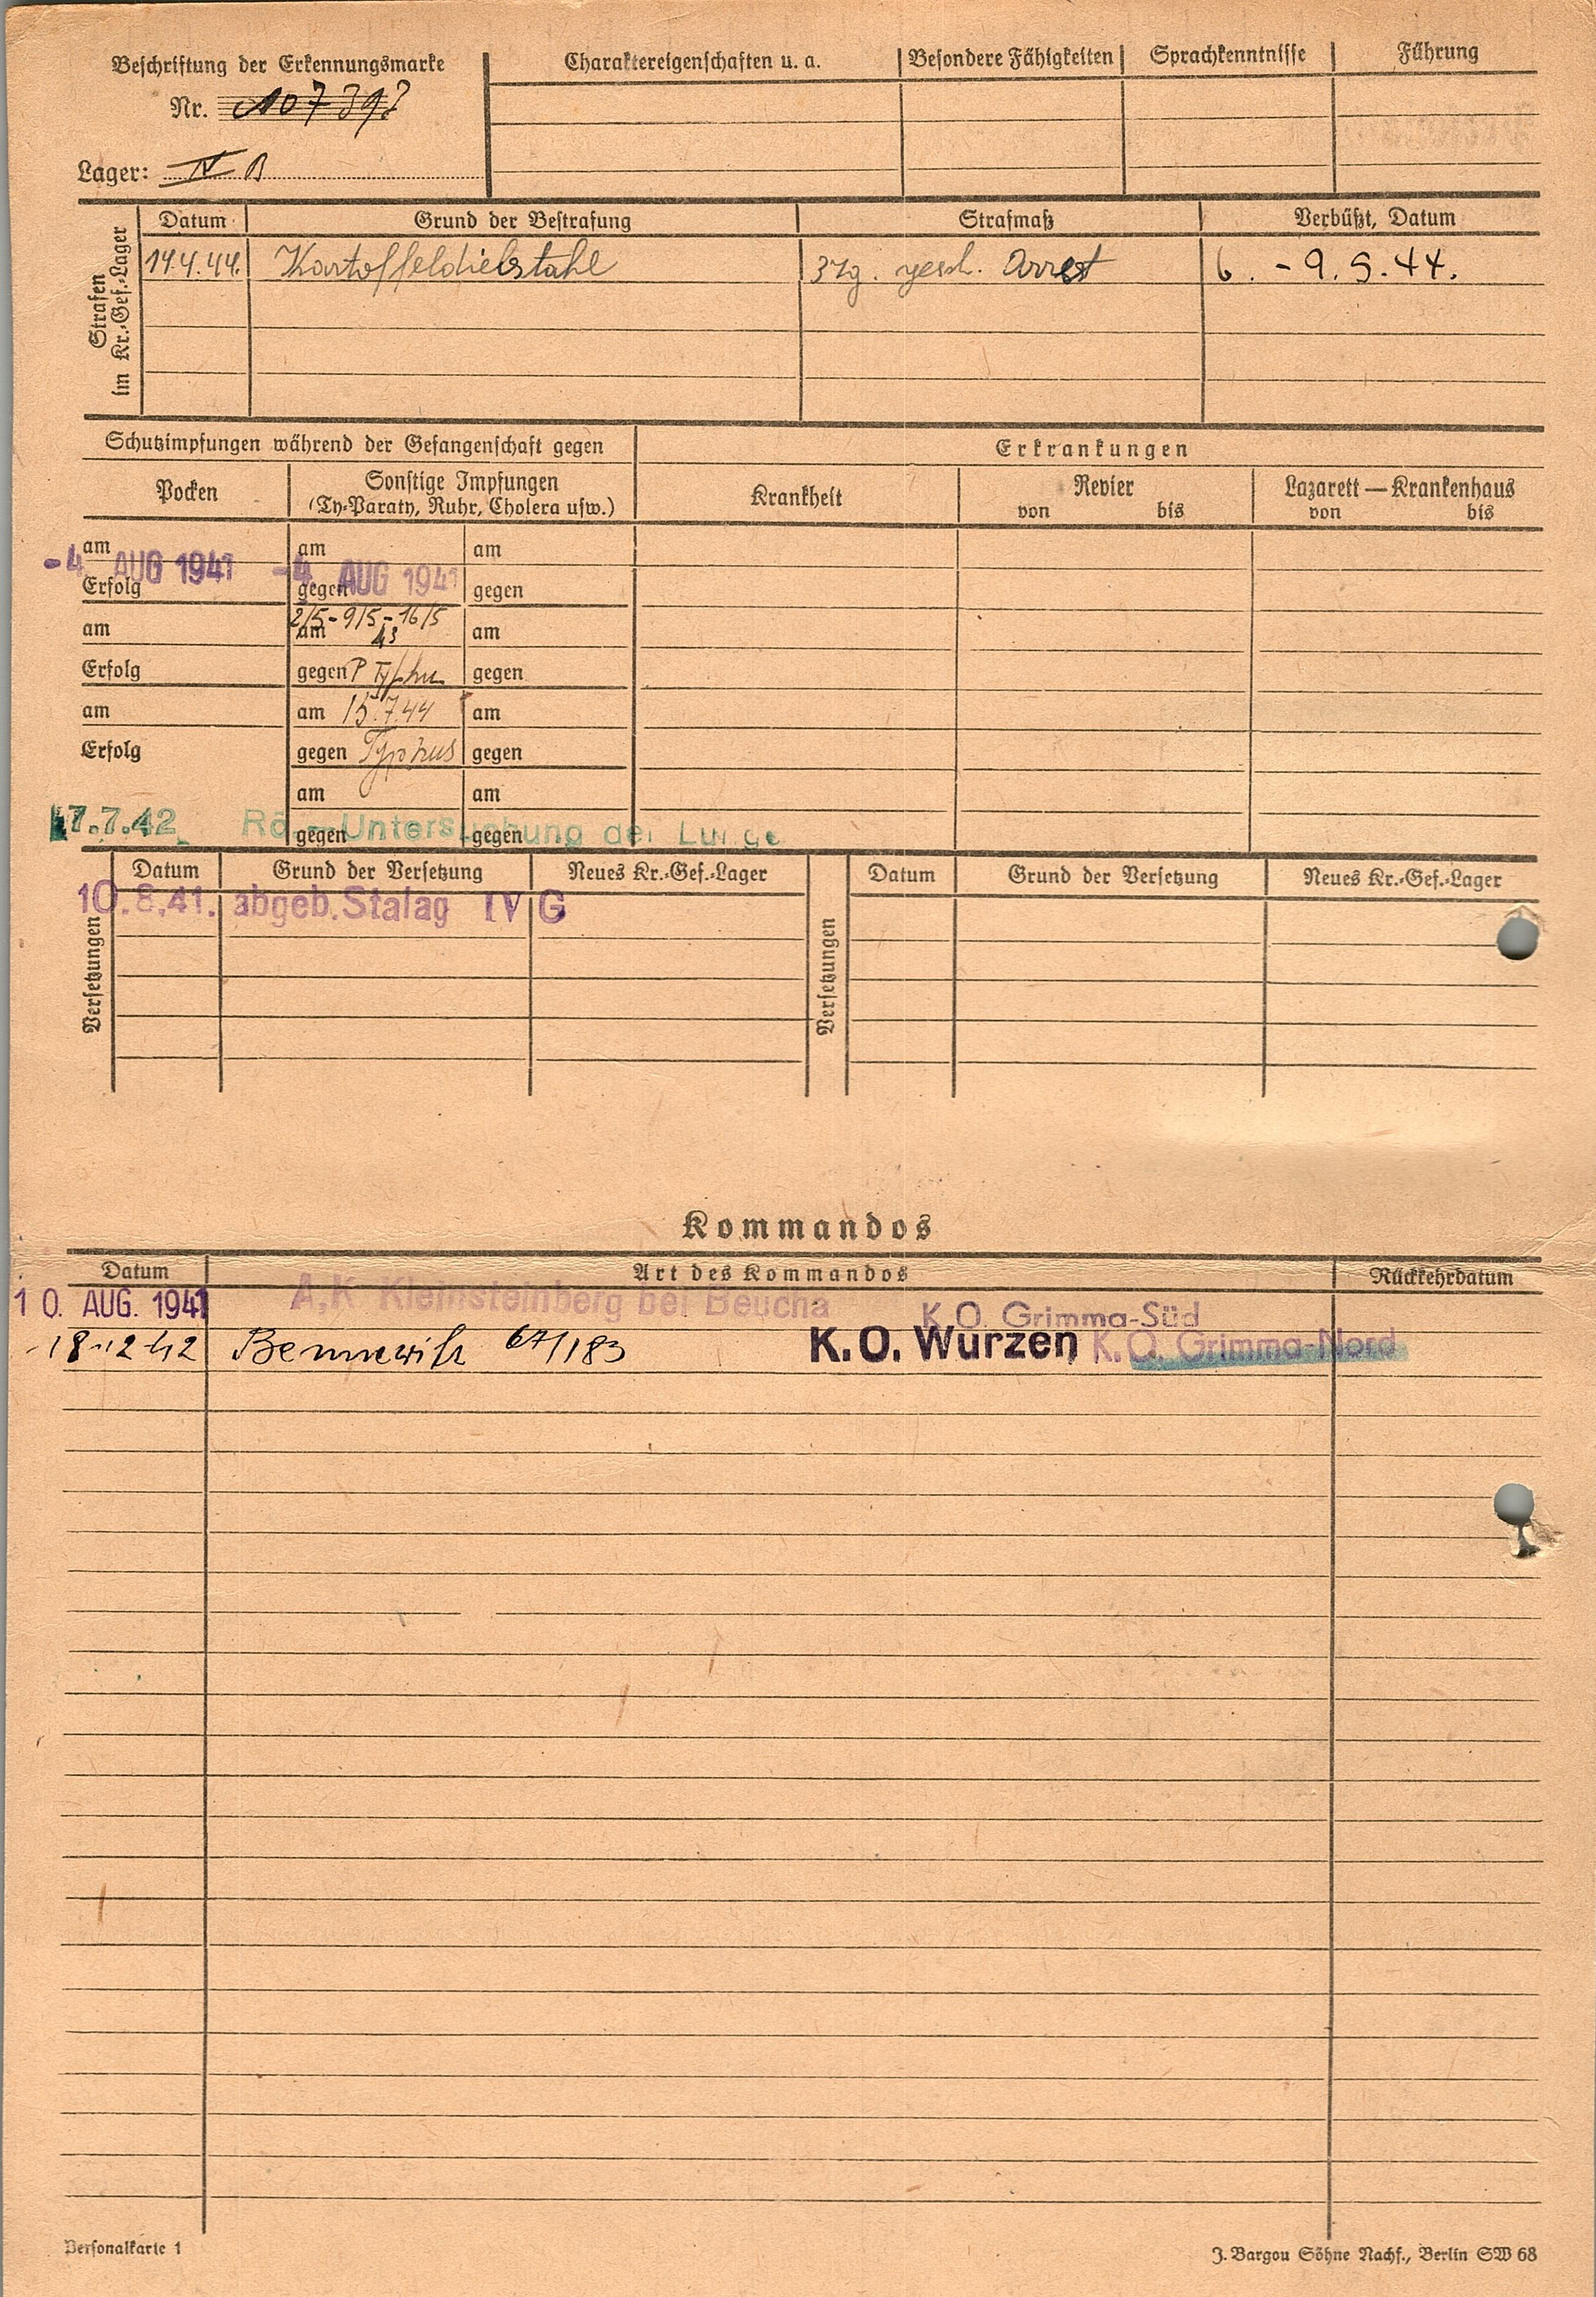 Beschriftung der Erkennungsmarke
Nr. 107397
Lager: IV B
Charaktereigenschaften u. a.
Besondere Fähigkeiten
Sprachkenntnisse
Führung
Strafen im Kr.-Gef.-Lager
Datum Grund der Bestrafung Strafmaß Verbüßt, Datum
14.4.44. Kartoffeldiebstahl 3 Tg. gesch. Arrest 6. - 9. 5. 44.
Schutzimpfungen während der Gefangenschaft gegen
Erkrankungen
Pocken
Sonstige Impfungen
(Ty-Paraty, Ruhr, Cholera usw.)
Krankheit
Revier
von bis
Lazarett — Krankenhaus
von bis
am am am
-4. AUG 1941 -4. AUG 1941
Erfolg gegen gegen
2/5 - 9/5 - 16/5
am am 43 am
Erfolg gegen P Typhu gegen
am am 15.7.44 am
Erfolg gegen Typhus gegen
am am
17.7.42 Rö.-Untersuchung der Lunge
gegen gegen
Versetzungen
Datum Grund der Versetzung Neues Kr.-Gef.-Lager
10.8.41. abgeb. Stalag IV G
Versetzungen
Datum Grund der Versetzung Neues Kr.-Gef.-Lager
Kommandos
Datum Art des Kommandos Rückkehrdatum
10. AUG. 1941 A.K Kleinsteinberg bei Beucha K.O. Grimma-Süd
18.12.42 Bennewitz 67/183 K.O. Wurzen K.O. Grimma-Nord
Personalkarte 1
J. Bargou Söhne Nachf., Berlin SW 68